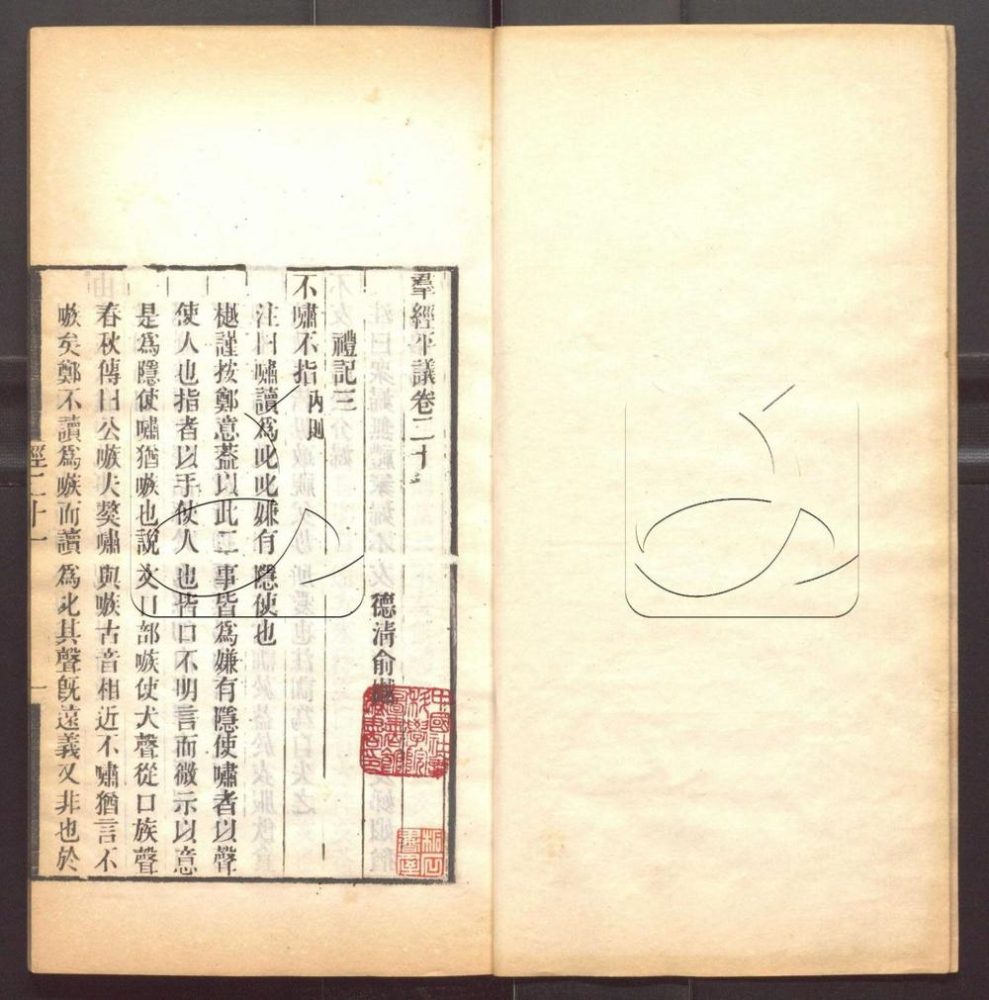 羣經平議卷二十
德清俞
禮記三
不嘯不指內則
注曰嘯讀爲叱叱嫌有隱使也
樾謹按鄭意葢以此二事皆爲嫌有隱使嘯者以聲
使人也指者以手使人也皆口不明言而微示以意
是爲隱使嘯猶嗾也說文口部嗾使犬聲從口族聲
春秋傳曰公嗾夫獒嘯與嗾古音相近不嘯猶言不
嗾矣鄭不讀爲嗾而讀爲叱其聲旣遠義又非也於
經二十一 一